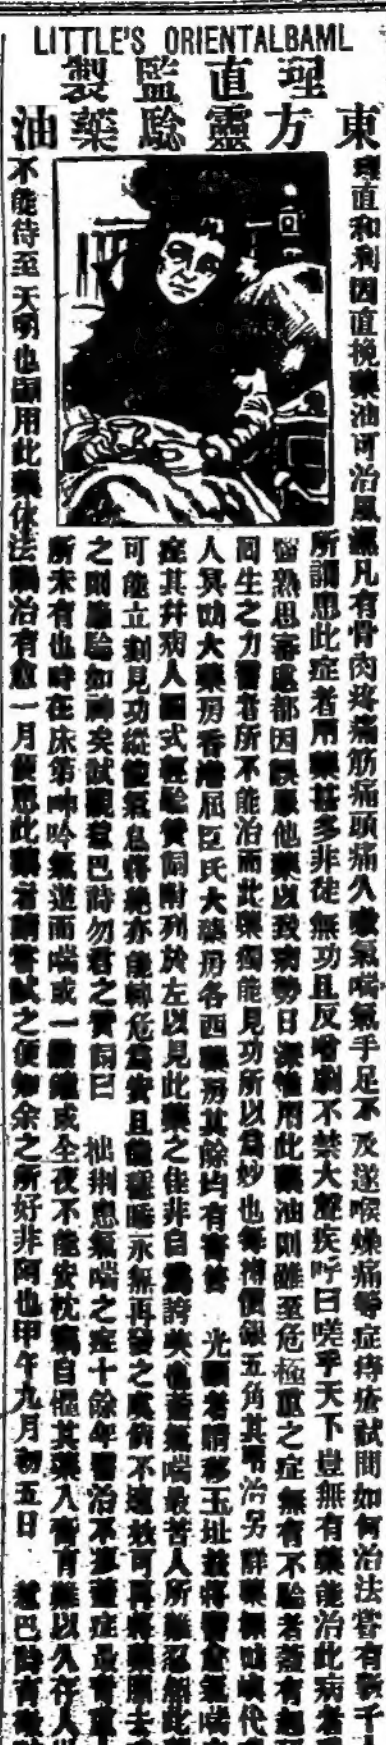 LITTLE'S ORIENTALBAML
理直監製
東方靈驗藥油
理直和利因直挽藥油可治風濕凡有骨肉疼痛筋痛頭痛久咳氣喘氣手足不及遂喉痛等症痔瘡試問如何治法嘗有數千
所謂患此症者用藥甚多非徒無功且反增劇不禁大聲疾呼曰嗟乎天下豈無有藥能治此病者
熟思審處都因誤服他藥以致病勢日深惟用此藥油則雖至危極重之症無有不驗者蓋有起
回生之力醫者所不能治而此藥獨能見功所以爲妙也每樽價銀五角其治另詳藥代
人大藥房香港屈臣氏大藥房各西藥房其餘均有寄售 光顧者請移玉址茲將醫愈氣喘
症其幷病人圖式經驗贊詞附列於左以見此藥之佳非自爲誇美也蓋氣喘最苦人所難忍解此
可能立刻見功縱使氣息將絕亦能轉危爲安且能穩睡永無再發之處倘不速效可再將藥照去
之則應驗如神矣試觀巴詩勿君之贊詞曰 拙荆患氣喘之症十餘年醫治不症最
所未有也時在床第呻吟氣逆而喘或一點鐘或全夜不能安枕竊自其藥入膏肓難以久存人
不能待至天明也聞用此藥依法調治有愈一月便此藥者請嘗試之便知余之所好非阿也甲午九月初五日 巴詩